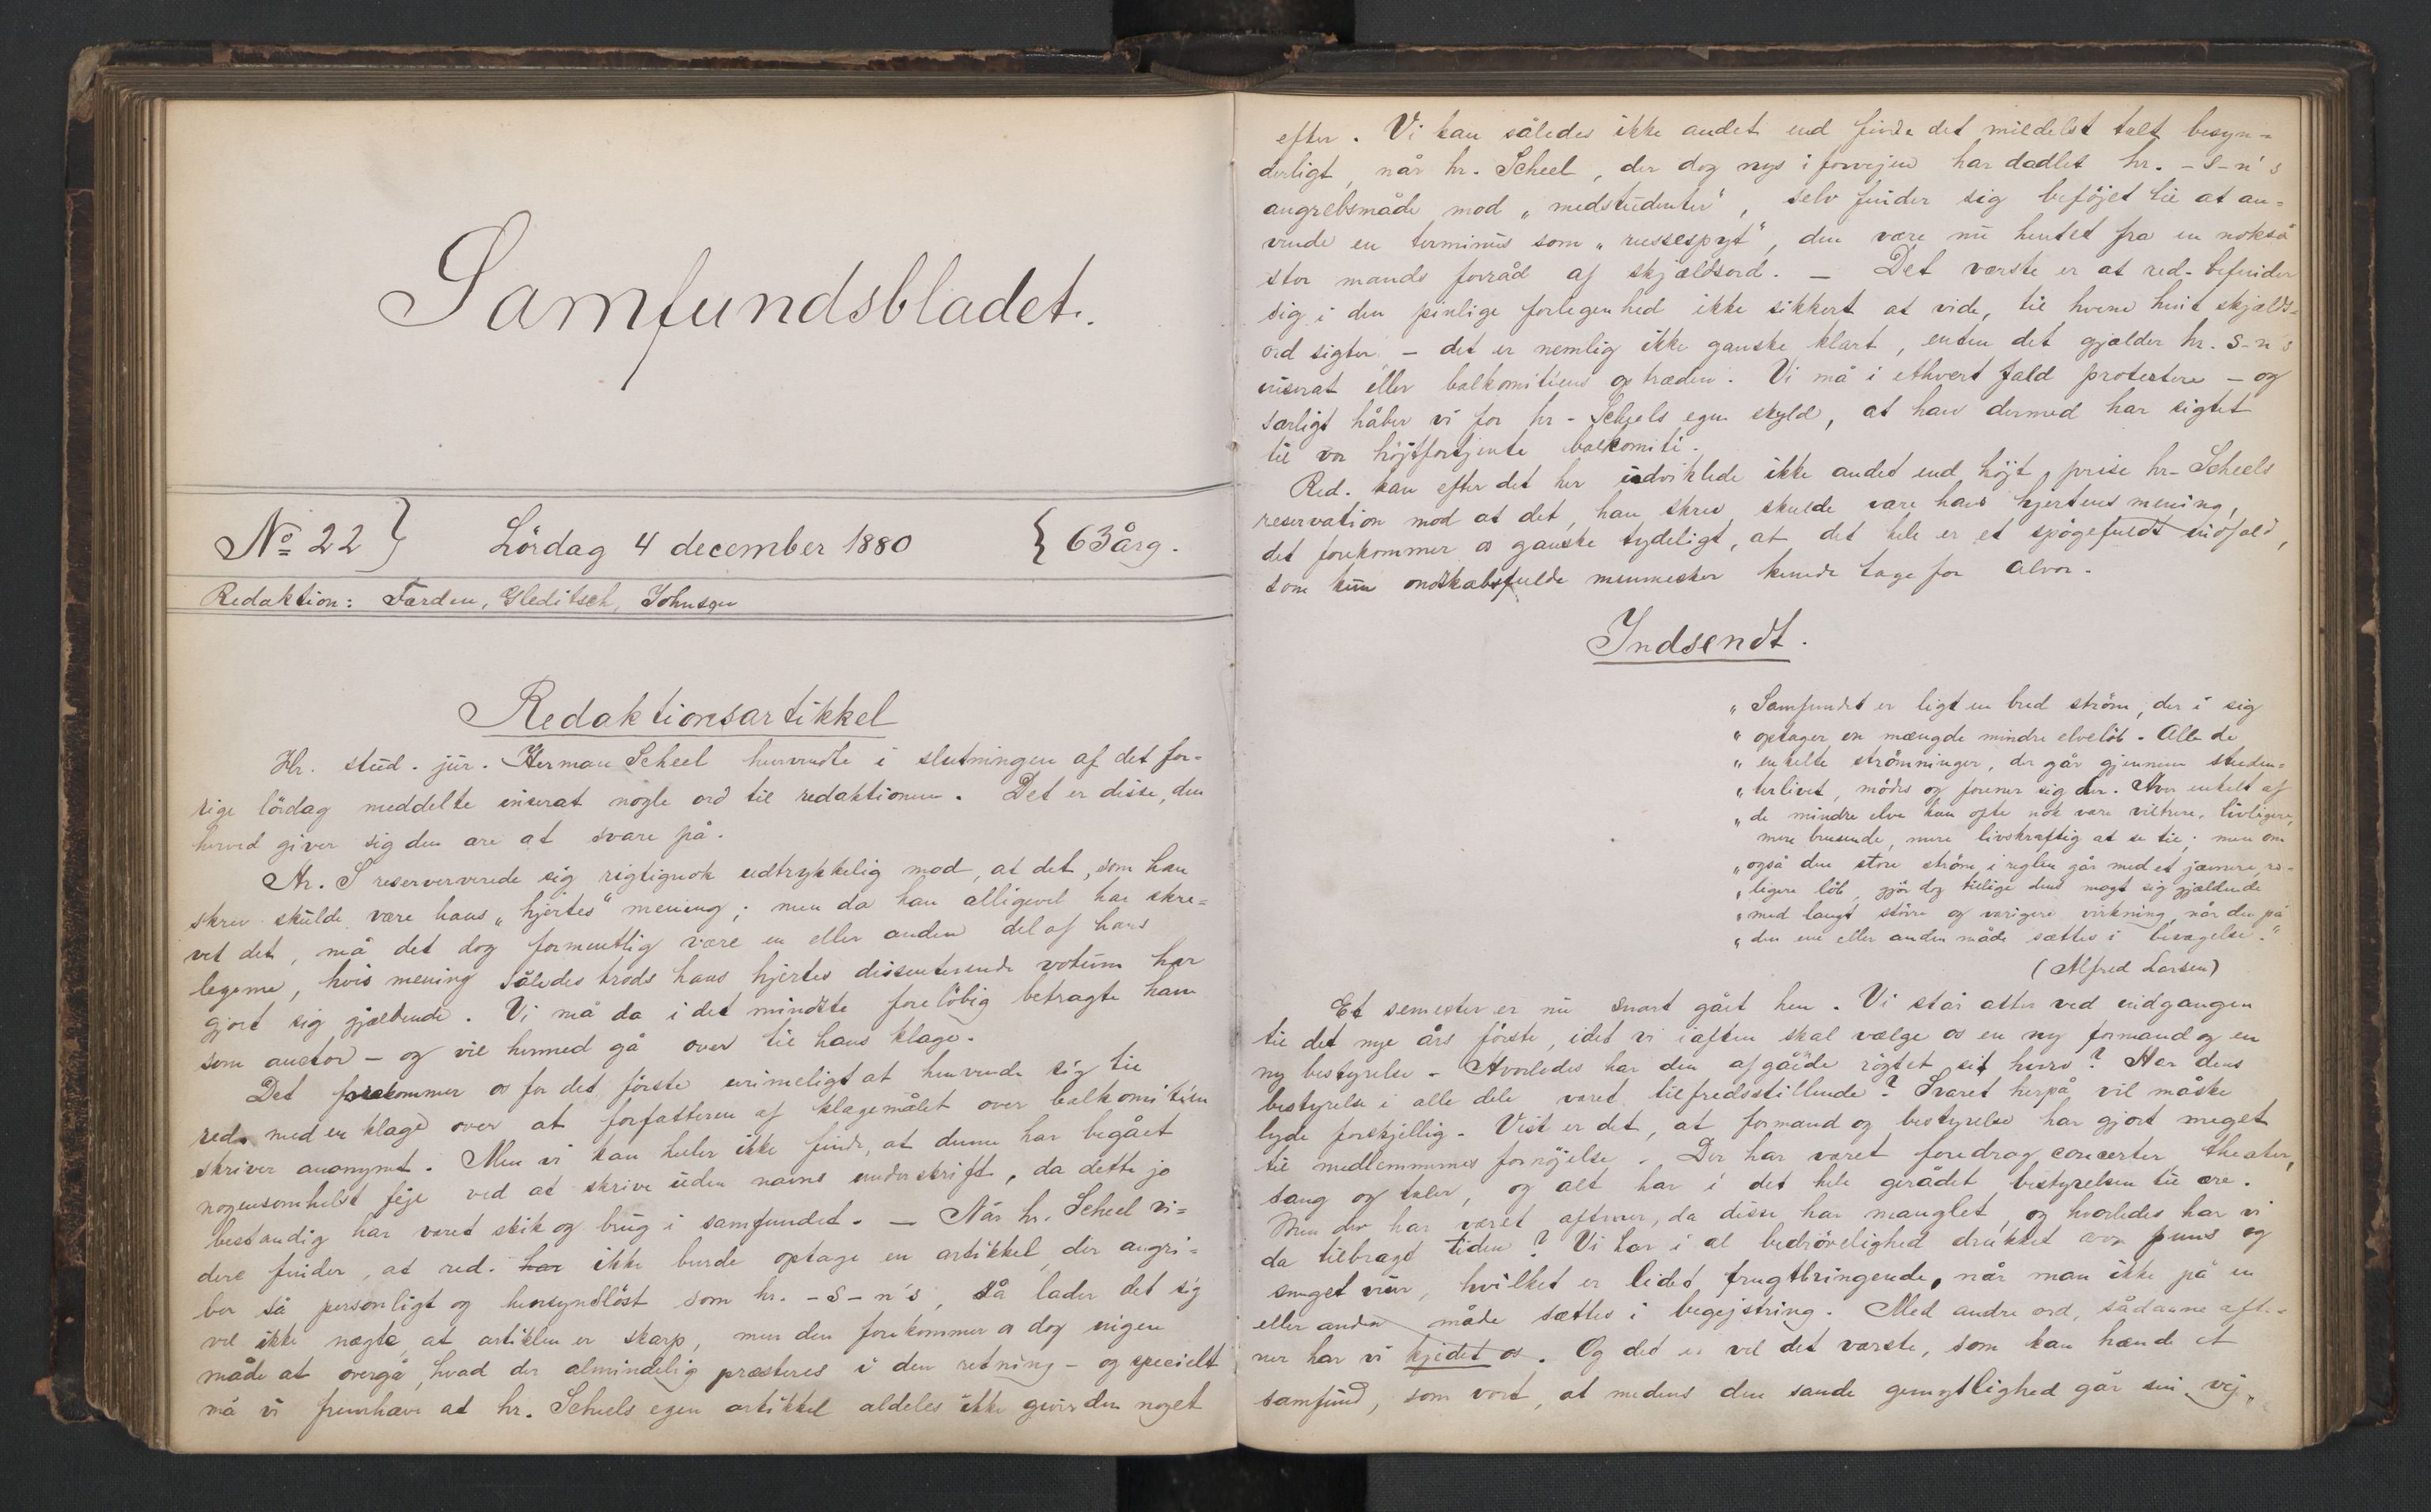 Samfundsbladet.
No 22} Lördag 4 december 1880 {63årg.
Redaktion: Færden, Gleditsch, Johnsen
Redaktionsartikkel
Hr. stud. jur. Herman Scheel henvendte i slutningen af det for-
rige lördag meddelte inserat nogle ord til redaktionen. Det er disse, den
herved giver sig den ære at svare på.
Hr. S reserververede sig rigtignok udtrykkelig mod, at det, som han
skrev skulde være hans "hjertes" mening; men da han alligevel har skre-
vet det, må det dog formentlig være en eller anden del af hans
legeme, hvis mening således trods hans hjertes dissenterende votum har
gjort sig gjældende. Vi må da i det mindste forelöbig betragte ham
som auctor – og vil hermed gå over til hans klage.
Det forekommer os for det förste urimeligt at henvende sig til
red. med en klage over at forfatteren af klagemålet over balkomitéen
skriver anonymt. Men vi kan heller ikke finde, at denne har begået
nogensomhelst feje ved at skrive uden navns underskrift, da dette jo
bestandig har været skik og brug i samfundet. — Når hr. Scheel vi-
dere finder, at red. har ikke burde optage en artikkel, der angri-
ber så personligt og hensynslöst som hr. -s-n's, så lader det sig
vel ikke nægte, at artiklen er skarp, men den forekommer os dog ingen
måde at overgå, hvad der almindelig præsteres i den retning – og specielt
må vi fremhæve at hr. Scheels egen artikkel aldeles ikke giver den noget
efter. Vi kan således ikke andet end finde det mildelst talt besyn-
derligt, når hr. Scheel, der dog nys i forvejen har dadlet hr. -s-n's
angrebsmåde mod "medstudenter", selv finder sig beföjet til at an-
vende en terminus som "russespyt", den være nu hentet fra en nokså
stor mands forråd af skjældsord. — Det værste er at red. befinder
sig i den pinlige forlegenhed ikke sikkert at vide, til hvem hint skjælds-
ord sigter, – det er nemlig ikke ganske klart, enten det gjælder hr. s-n's
inserat eller balkomitéens optræden. Vi må i ethvert fald protestere – og
særligt håber vi for hr. Schjels egen skyld, at han dermed har sigtet
til vor höjtfortjente balkomité.
Red. kan efter det her udviklede ikke andet end höjt prise hr. Scheels
reservation mod at det, han skrev skulde være hans hjertens mening,
det forekommer os ganske tydeligt, at det hele er et spögefuldt indfald,
som kun ondskabsfulde mennesker kunde tage for alvor.
Indsendt.
"Samfundet er ligt en bred ström, der i sig
"optager en mængde mindre elvelöb. Alle de
"enkelte strömninger, der går gjennem studen-
"terlivet, mödes og forener sig der. Hver enkelt af
"de mindre elve kan ofte nok være viltrere, livligere,
mere brusende, mere livskraftig at se til; men om
"også den store ström i reglen går med et jævnere, ro-
"ligere löb, gjör dog tillige dens magt sig gjældende
"med langt större og varigere virkning, når den på
"den ene eller anden måde sættes i bevægelse."
(Alfred Larsen)
Et semester er nu snart gået hen. Vi står atter ved indgangen
til det nye års förste, idet vi iaften skal vælge os en ny formand og en
ny bestyrelse. Hvorledes har den afgåede rögtet sit hverv? Har dens
bestyrelse i alle dele været tilfredsstillende? Svaret herpå vil måske
lyde forskjellig. Vist er det, at formand og bestyrelse har gjort meget
til medlemmernes fornöjelse. Der har været foredrag concerter theater,
sang og taler, og alt har i det hele gerådet bestyrelsen til ære.
Men der har været aftener, da disse har manglet, og hvorledes har vi
da tilbragt tiden? Vi har i al bedrövelighed drukket vor puns og
sunget viser, hvilket er lidet frugtbringende, når man ikke på en
eller anden måde sættes i begejstring. Med andre ord, sådanne afte-
ner har vi kjedet os. Og det er vel det værste, som kan hænde et
samfund, som vort, at medens den sande gemytlighed går sin vej